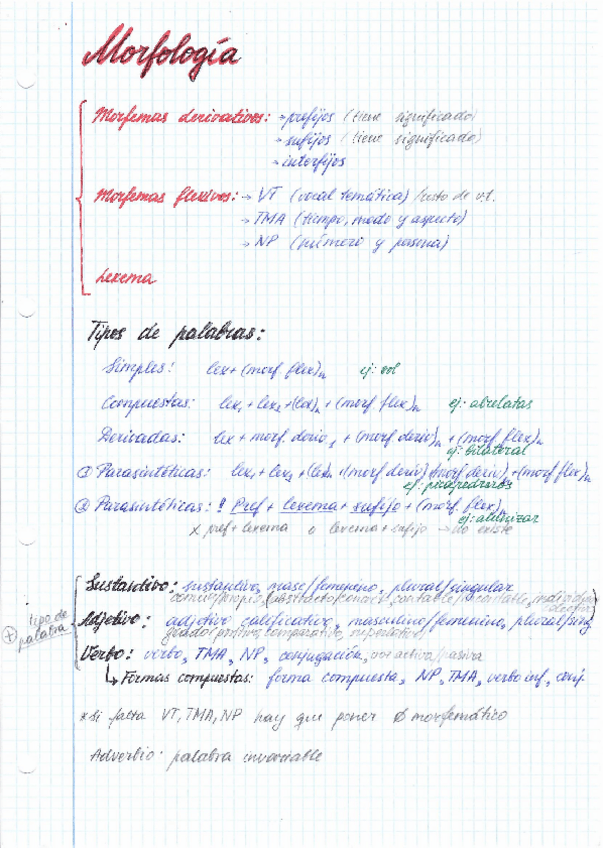 Morfología
Morfemas derivativos: → prefijos (tiene significado)
→ sufijos (tiene significado)
→ interfijos
Morfemas flexivos: → VT (vocal temática) /resto de v.t.
→ TMA (tiempo, modo y aspecto)
→ NP (número y persona)
Lexema
Tipos de palabras:
Simples: lex + (morf. flex)n ej: sol
Compuestas: lex1 + lex2 + (lex)n + (morf. flex)n ej: abrelatas
Derivadas: lex + morf. deriv1 + (morf deriv)n + (morf flex)n
ej: bilateral
① Parasintéticas: lex1 + lex2 + (lex)n + (morf deriv) (morf deriv)n + (morf flex)n
ej: picapedreros
② Parasintéticas: ! Pref + lexema + sufijo + (morf. flex)n
ej:
x pref + lexema o lexema + sufijo → no existe
Sustantivo: sustantivo, masc/femenino, plural/singular
común/propio, (abstracto/concreto, contable/
Adjetivo: adjetivo calificativo, masculino/femenino, plural/sing
grado (positivo, comparativo, superlativo)
+ tipo de palabra
Verbo: verbo, TMA, NP, conjugación, voz activa/pasiva
↳ Formas compuestas: forma compuesta, NP, TMA, verbo inf, conj.
* Si falta VT, TMA, NP hay que poner Ø morfemático
Adverbio: palabra invariable